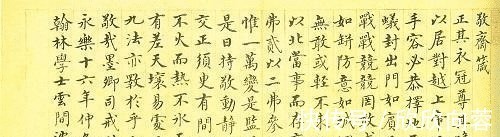 敬齋箴
正其衣冠尊
以居對越上
手容必恭擇地
蟻封出門如
戰戰兢兢罔敢
如缾防意如
無敢或輕不
以北當事而
弗貳以二弗參
惟一萬變是監
是曰持敬動靜
交正須臾有間
不火而熱不氷
有差天壤易處
九法亦斁於乎
敬哉墨卿司戒
永樂十六年仲
翰林學士雲間
快传号